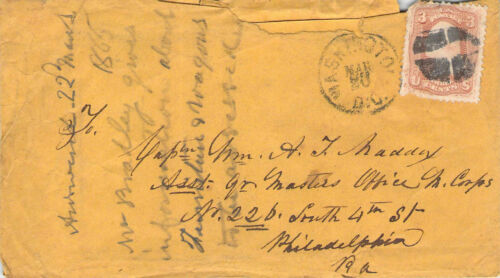 Answered 22 Mar
1865
Mr Bradley gives
information about
& Wagons
to be received
WASHINGTON
MAR
20
D.C.
3
3
To.
Captn Wm. A. T. Maddox
Asst. Qr Masters Office M. Corps
No. 226. South 4th St
Philadelphia
Pa